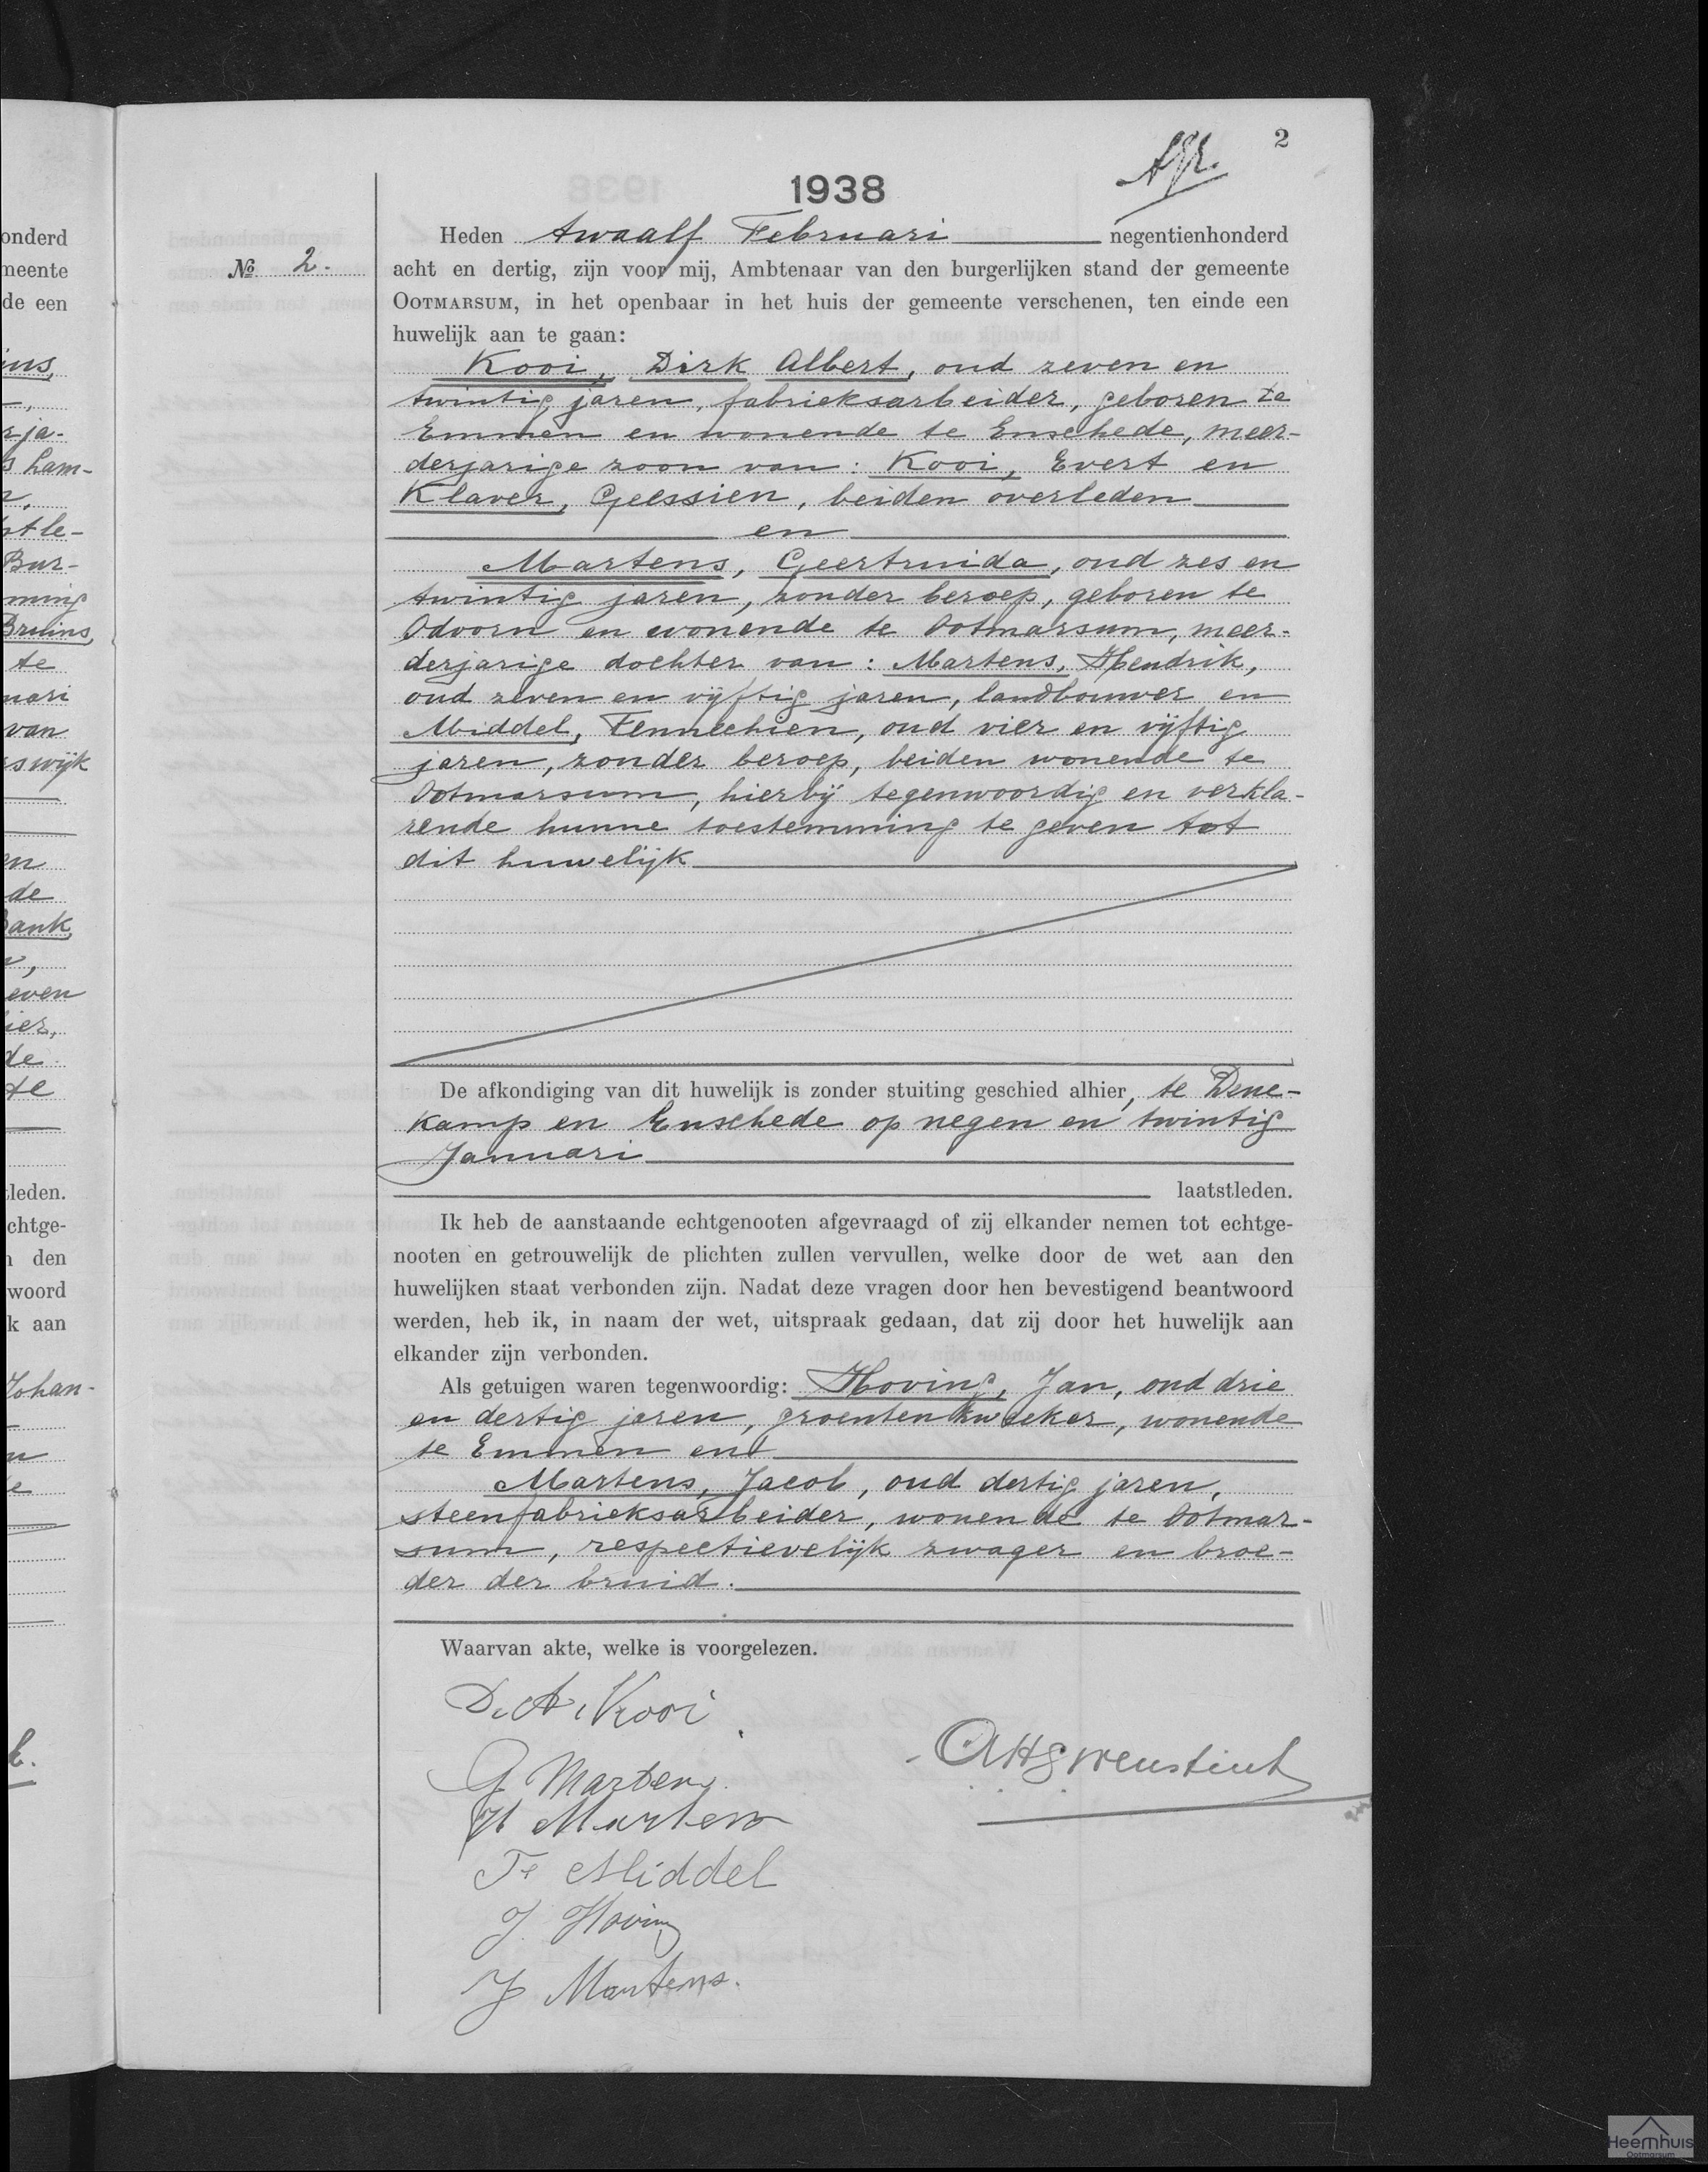 onderd
meente
de een
ins,
rja-
s ham-
stle-
Bur-
ming
Bruins,
te
nari
van
swijk
en
de
Bank
even
ier,
de
te
tleden.
chtge-
den
woord
k aan
Johan-
2
1938
No 2.
Heden twaalf Februari negentienhonderd
acht en dertig, zijn voor mij, Ambtenaar van den burgerlijken stand der gemeente
OOTMARSUM, in het openbaar in het huis der gemeente verschenen, ten einde een
huwelijk aan te gaan:
Kooi, Dirk Albert, oud zeven en
twintig jaren, fabrieksarbeider, geboren te
Emmen en wonende te Enschede, meer-
derjarige zoon van: Kooi, Evert en
Klaver, Geessien, beiden overleden
en
Martens, Geertruida, oud zes en
twintig jaren, zonder beroep, geboren te
Odoorn en wonende te Ootmarsum, meer-
derjarige dochter van: Martens, Hendrik,
oud zeven en vijftig jaren, landbouwer en
Middel, Fennechien, oud vier en vijftig
jaren, zonder beroep, beiden wonende te
Ootmarsum, hierbij tegenwoordig en verkla-
rende hunne toestemming te geven tot
dit huwelijk
De afkondiging van dit huwelijk is zonder stuiting geschied alhier, te Dene-
kamp en Enschede op negen en twintig
Januari
laatstleden.
Ik heb de aanstaande echtgenooten afgevraagd of zij elkander nemen tot echtge-
nooten en getrouwelijk de plichten zullen vervullen, welke door de wet aan den
huwelijken staat verbonden zijn. Nadat deze vragen door hen bevestigend beantwoord
werden, heb ik, in naam der wet, uitspraak gedaan, dat zij door het huwelijk aan
elkander zijn verbonden.
Als getuigen waren tegenwoordig: Hoving, Jan, oud drie
en dertig jaren, groentenkweeker, wonende
te Emmen en
Martens, Jacob, oud dertig jaren,
steenfabrieksarbeider, wonende te Ootmar-
sum, respectievelijk zwager en broe-
der der bruid.
Waarvan akte, welke is voorgelezen.
D. A. Kooi
G Martens.
H Martens
Fe Middel
J. Hoving
J Martens.
Heemhuis
Ootmarsum